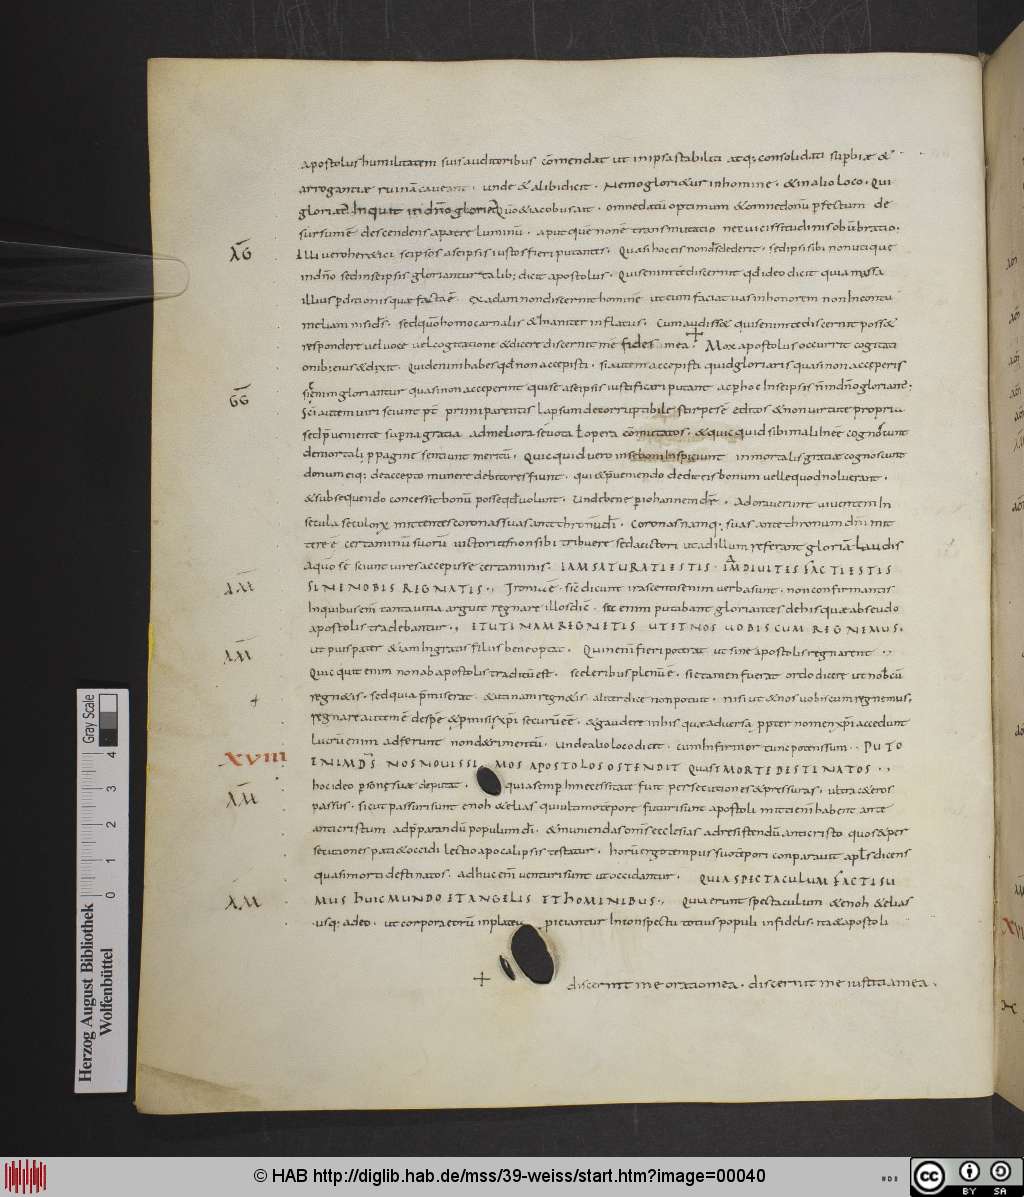 apostolus humilitatem suis auditoribus cōmendat ut in ipsa stabiliti atq; consolidati supbiæ &
arrogantiæ ruinā caveant. unde & alibi dicit. Nemo glorietur in homine. & in alio loco. Qui
gloriat̄ Inquit in dn̄o glorie& Quō & iacobus ait. omne datū optimum & omne donū pfectum de
sursum ē descendens a patre luminū. aput quē non ē transmutatio nec vicissitudinis obūbratio;
ΑϬ
Illi vero heretici se ipsos a se ipsis iustos fieri putantes. Quasi hoc eis non ds̄ dederit. sed ipsi sibi non utique
in dn̄o sed in se ipsis gloriantur talib; dicit apostolus. Quis enim te discernit qd ideo dicit quia massa
illius pditionis quæ facta ē ex adam non discernit hominē ut eum faciat vas in honorem non In contu
meliam nisi ds̄. sed quō homo carnalis & Inaniter inflatus. Cum audisset quis enim te discernit posset
respondere vel voce vel cogitatione & dicere discernit me fides mea. Mox apostolus occurrit cogitati
onib; eius & dixit. Quid enim habes qd non accepisti. si autem accepisti quid gloriaris quasi non acceperis
ϬϬ
sic enim gloriantur quasi non acceperint qui se a se ipsis iustificari putant ac p hoc In se ipsis n̄ in dn̄o gloriant̄;
Sc̄i autem viri sciunt primi parentis lapsum de corruptibile stirpe se editos & non virtute propria
sed pveniente supna gratia ad meliora se vota l opera cōmutatos. & quicquid sibi mali Inēe cognoscunt
de mortali ppagine sentiunt meritū. Quicquid vero in se boni Inspiciunt inmortalis gratiæ cognoscunt
donum eiq; de accepto munere debitores fiunt. qui & pveniendo dedit eis bonum velle quod noluerant.
& subsequendo concessit bonū posse qd volunt. Unde bene p iohannem dr̄. Adoraverunt viventem In
secula seculorum mittentes coronas suas ante thronū dī. Coronas namq; suas ante thronum dn̄i mit
tere ē certaminū suorū victorias non sibi tribuere sed auctori ut ad illum referant gloriā laudis
A quo se sciunt vires accepisse certaminis. IAM SATURATI ESTIS. IĀ DIVITES FACTI ESTIS
ΑΜ
SINE NOBIS REGNATIS. Ironice. sic dicunt irascentis enim verba sunt. non confirmantis
In quibus enī tanta vitia arguit regnare illos dicit. se enim putabant gloriantes de his quæ a pseudo
apostolis tradebantur. ET UTINAM REGNETIS UT ET NOS VOBISCUM REGNEMUS.
ΑΜ
ut pius pater etiam Ingratis filiis bene optat. Qui enim fieri poterat ut sine apostolis regnarent
Quicquit enim non ab apostolis traditū est. sceleribus plenū ē. si etamen fuerat ordo dicere ut nobiscū
+
regnetis. sed quia pmiserat. & utinam regnetis. aliter dicere non potuit. nisi ut & nos vobiscum regnemus.
regnare autem ē de spē & pmisis xp̄i securū ēē. & gaudere in his quæ adversa ppter nomen xp̄i accedunt
Lucrū enim adferunt non detrimentū. unde alio loco dicit. cum Infirmor tunc potens sum. PUTO
XVIII
ENIM DS̄ NOS NOVISSIMOS APOSTOLOS OSTENDIT QUASI MORTE DESTINATOS
ΑΜ
hoc ideo psonę suæ deputat. quia semp In necessitate fuit persecutiones & pressuras. ultra ceteros
passus. sicut passuri sunt enoh & elias qui ultimo tēpore futuri sunt apostoli mitti enī habent ante
anticristum ad pparandū populum dī. & muniendas omīs ecclesias ad resistendū anticristo quos & per
secutiones pati & occidi lectio apocalipsis testatur. horū ergo tempus suo tēpori conparavit apls dicens
quasi morti destinatos. adhuc enī venturi sunt ut occidantur. QUIA SPECTACULUM FACTI SU
ΑΜ
MUS HUIC MUNDO ET ANGELIS ET HOMINIBUS. Quia erunt spectaculum & enoh & elias
usq; adeo. ut corpora eorū in plateis piciantur In conspectu totius populi infidelis. ita & apostoli
+ discernit me oratio mea. discernit me iustitia mea.
Herzog August Bibliothek
Wolfenbüttel
Gray Scale
0 1 2 3 4
© HAB http://diglib.hab.de/mss/39-weiss/start.htm?image=00040
CC BY SA